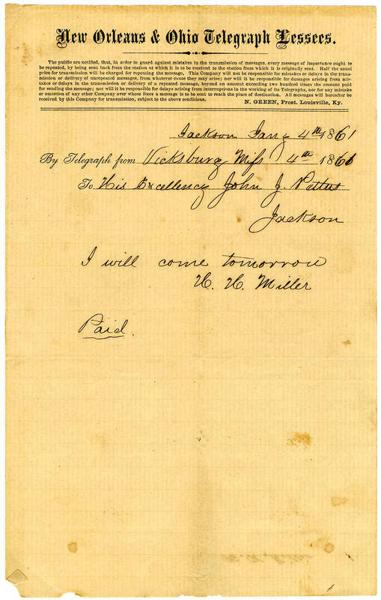 New Orleans & Ohio Telegraph Lessees.
The public are notified, that, in order to guard against mistakes in the transmission of messages, every message of importance ought to
be repeated, by being sent back from the station at which it is to be received to the station from which it is originally sent. Half the usual
price for transmission will be charged for repeating the message. This Company will not be responsible for mistakes or delays in the trans-
mission or delivery of unrepeated messages, from whatever cause they may arise; nor will it be responsible for damages arising from mis-
takes or delays in the transmission or delivery of a repeated message, beyond an amount exceeding two hundred times the amount paid
for sending the message; nor will it be responsible for delays arising from interruptions in the working of its Telegraphs, nor for any mistake
or omission of any other Company over whose lines a message is to be sent to reach the place of destination. All messages will hereafter be
received by this Company for transmission, subject to the above conditions.
N. GREEN, Prest. Louisville, Ky.
Jackson Jany 4th 1861
By Telegraph from Vicksburg Miss 4th 1861
To His Excellency John J. Pettus
Jackson
I will come tomorrow
H. H. Miller
Paid.